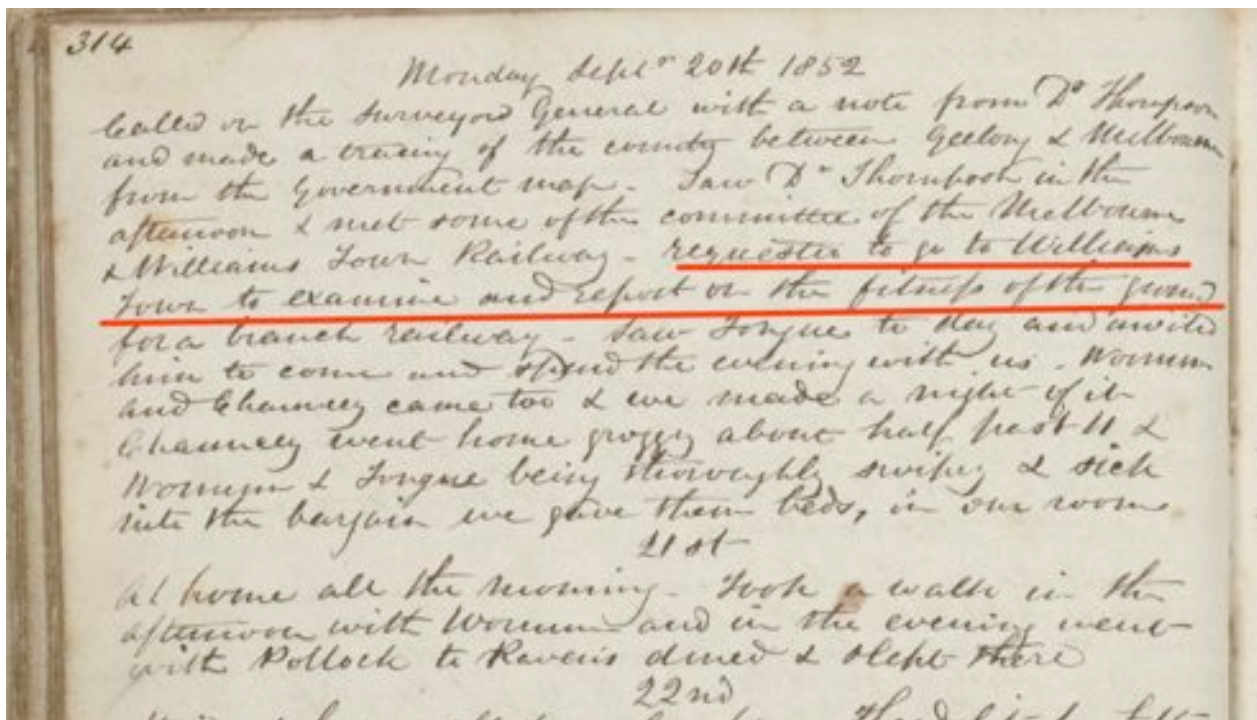 314
Monday Septr 20th 1852
Called on the Surveyor General with a note from Dr Thompson
and made a tracing of the country between Geelong & Melbourne
from the Government map - Saw Dr Thompson in the
afternoon & met some of the committee of the Melbourne
& Williams Town Railway - requested to go to Williams
Town to examine and report on the fitness of the ground
for a branch railway - Saw Tongue to day and invited
him to come and spend the evening with us.
and Chauncey came too & we made a night of it
Chauncey went home groggy about half past 11 &
& Tongue being thoroughly swipey & sick
into the bargain we gave them beds, in our rooms
21st
At home all the morning - Took a walk in the
afternoon with and in the evening went
with Pollock to Raven's dined & slept there
22nd